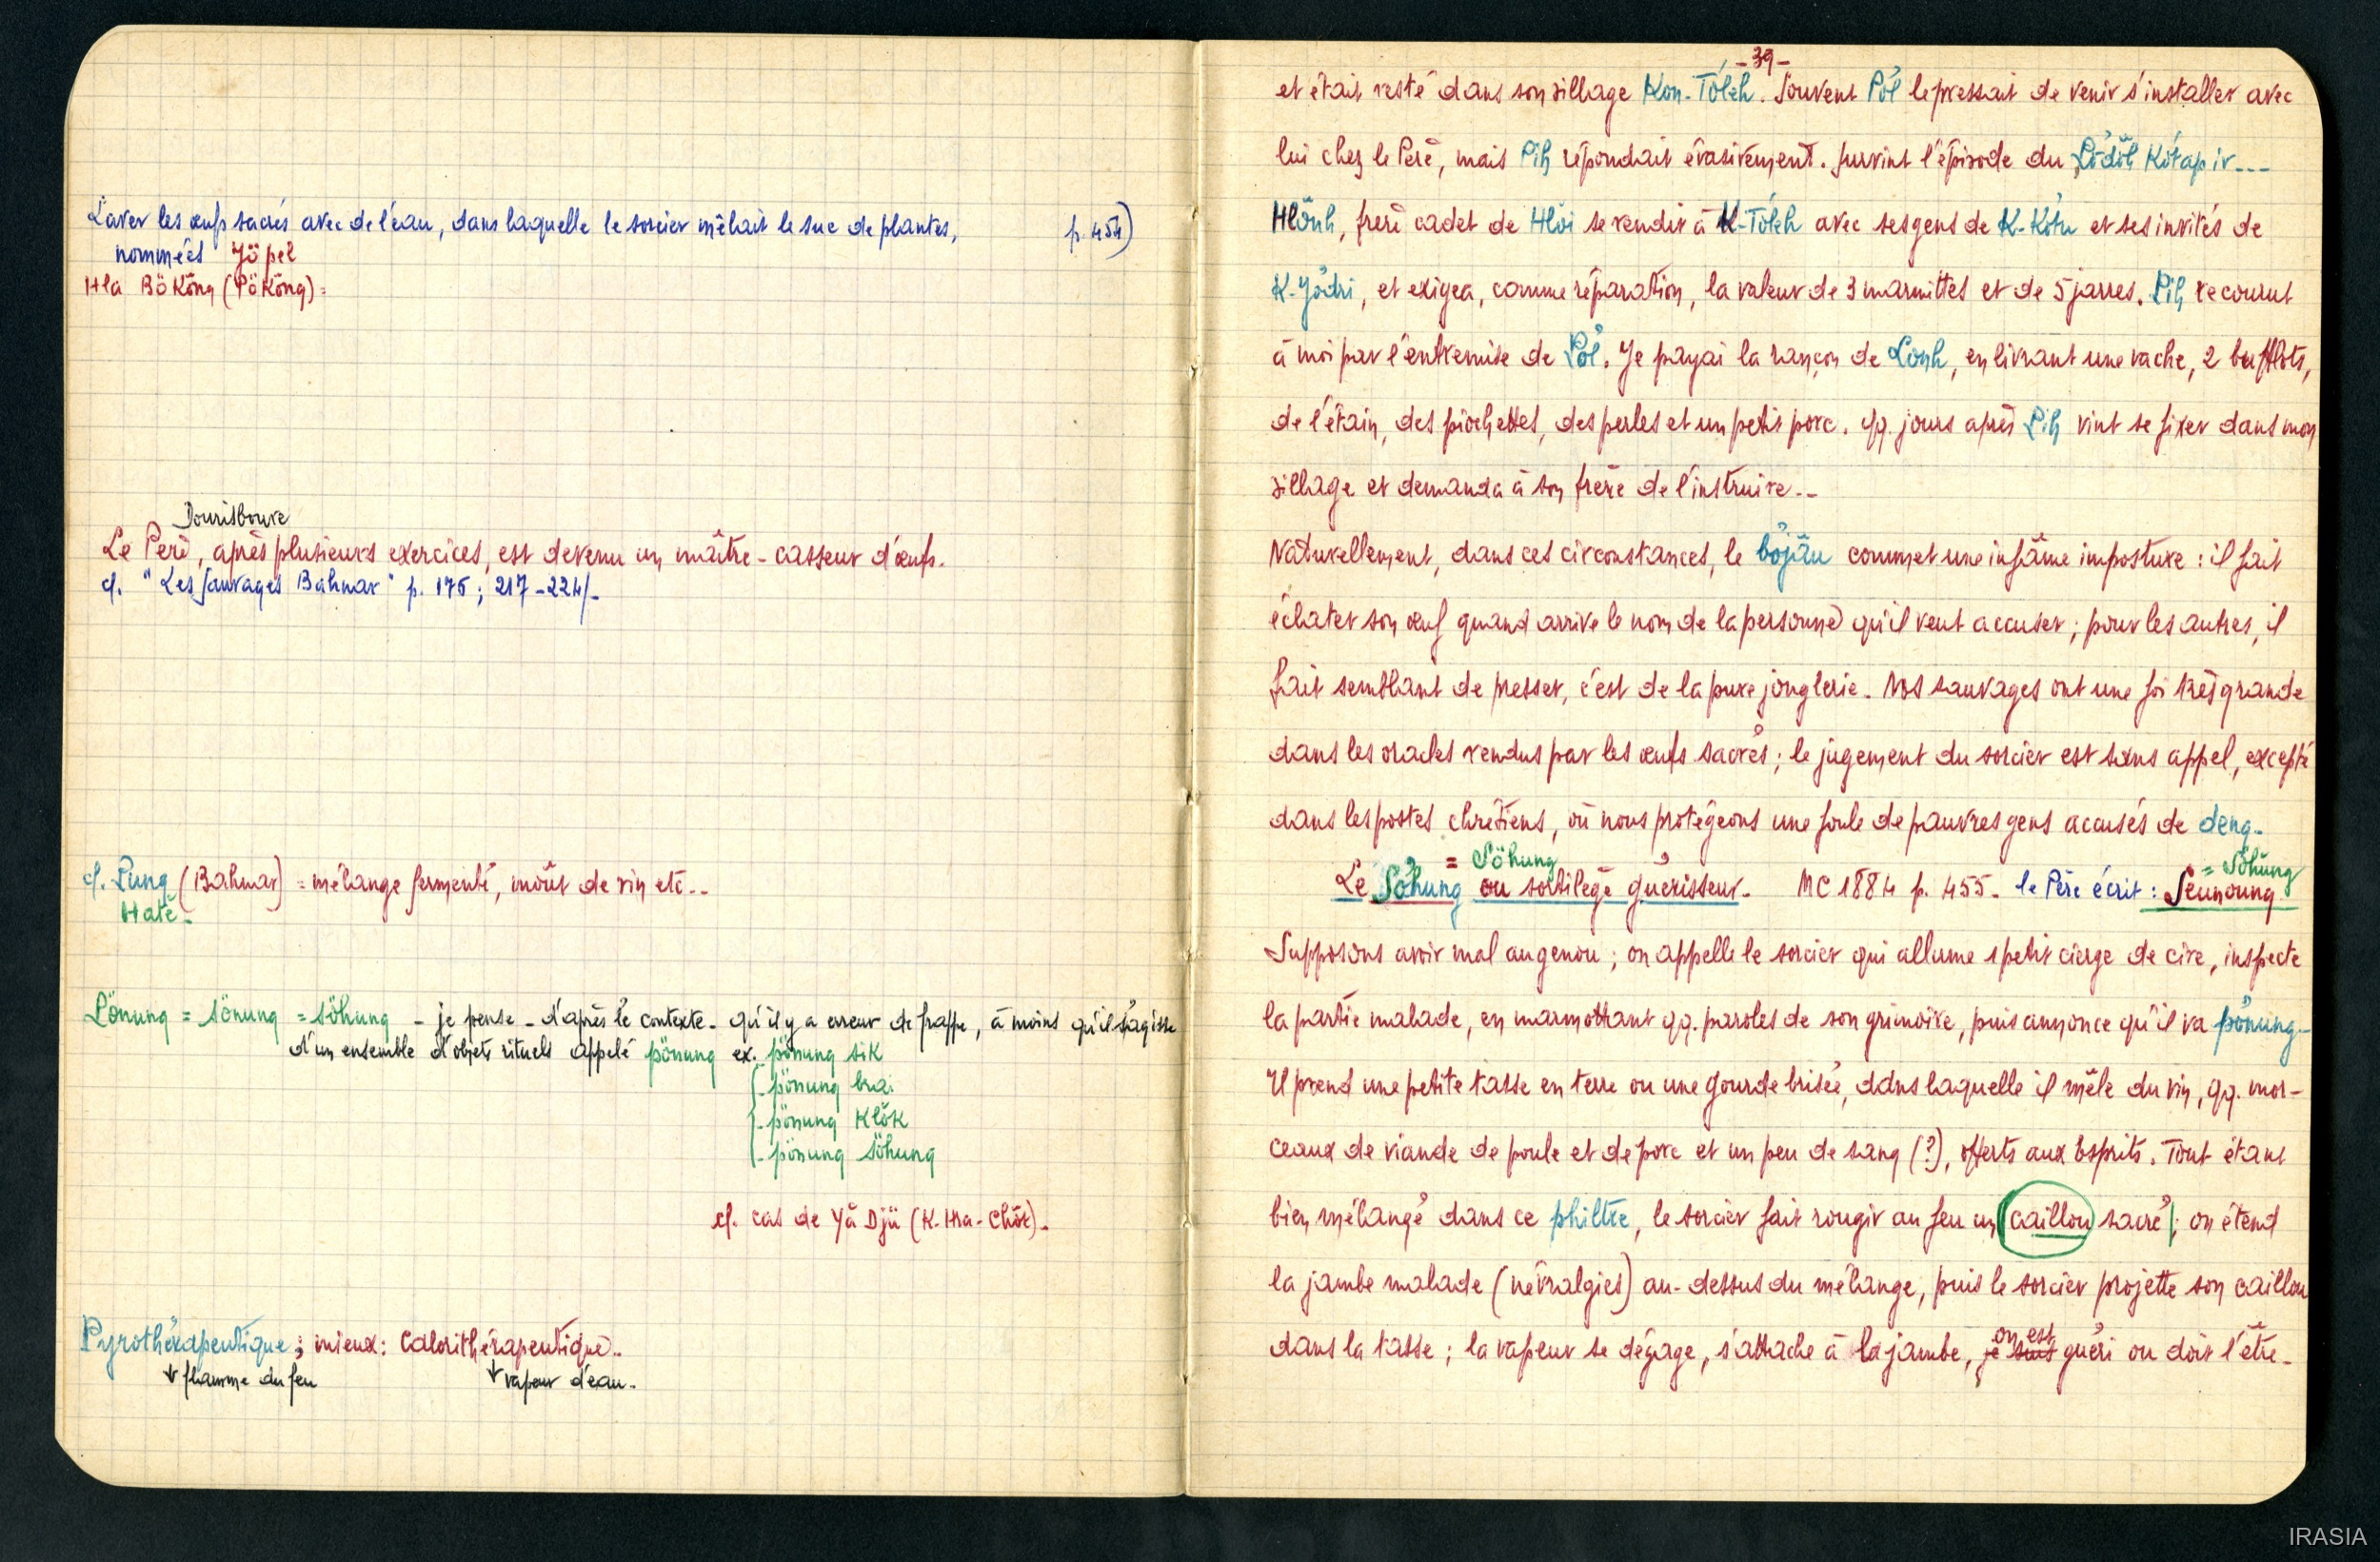 Laver les œufs sacrés avec de l'eau, dans laquelle le sorcier mêlait le suc de plantes, p. 454)
nommées Jöpel
Hla Bökŏng (Pökŏng) =
Dourisboure
Le Père, après plusieurs exercices, est devenu un maître-casseur d'œufs.
cf. "Les Sauvages Bahnar" p. 175 ; 217-224/-
cf. Pung (Bahnar) = mélange fermenté, moût de vin etc..
Hatĕ -
Lönung = sönung = söhung - je pense - d'après le contexte - qu'il y a erreur de frappe, à moins qu'il s'agisse
d'un ensemble d'objets rituels appelé pönung ex. pönung sik
- pönung brai
- pönung Klŏk
- pönung söhung
cf. cas de Yă Djü (K. Hra-Chŏt).
Pyrothérapeutique ; mieux : Calorithérapeutique..
↓ flamme du feu ↓ vapeur d'eau.
- 39 -
et était resté dans son village Kon-Tơleh. Souvent Pơl le pressait de venir s'installer avec
lui chez le Père, mais Pih répondait évasivement. Survint l'épisode du Pơdŏh Kơtap ir---
Hlŏnh, frère cadet de Hlơi se rendit à K-Tơleh avec ses gens de K-Kơtu et ses invités de
K-Jơdri, et exigea, comme réparation, la valeur de 3 marmites et de 5 jarres. Pih recourut
à moi par l'entremise de Pơl. Je payai la rançon de Lơnh, en livrant une vache, 2 bufflots,
de l'étain, des piochettes, des perles et un petit porc. qq. jours après Pih vint se fixer dans mon
village et demanda à son frère de l'instruire..
Naturellement, dans ces circonstances, le bơjâu commet une infâme imposture : il fait
éclater son œuf quand arrive le nom de la personne qu'il veut accuser ; pour les autres, il
fait semblant de presser, c'est de la pure jonglerie. Nos sauvages ont une foi très grande
dans les oracles rendus par les œufs sacrés ; le jugement du sorcier est sans appel, excepté
dans les postes chrétiens, où nous protégeons une foule de pauvres gens accusés de deng.
= Söhung = Söhŭng
Le Sơhung ou sortilège guérisseur. MC 1884 p. 455. le Père écrit : Seunoung
Supposons avoir mal au genou ; on appelle le sorcier qui allume 1 petit cierge de cire, inspecte
la partie malade, en marmottant qq. paroles de son grimoire, puis annonce qu'il va pơnung -
Il prend une petite tasse en terre ou une gourde brisée, dans laquelle il mêle du vin, qq. mor-
ceaux de viande de poule et de porc et un peu de sang (?), offerts aux Esprits. Tout étant
bien mélangé dans ce philtre, le sorcier fait rougir au feu un caillou sacré ; on étend
la jambe malade (névralgies) au-dessus du mélange, puis le sorcier projette son caillou
on est
dans la tasse ; la vapeur se dégage, s'attache à la jambe, je suis guéri ou doit l'être -
IRASIA